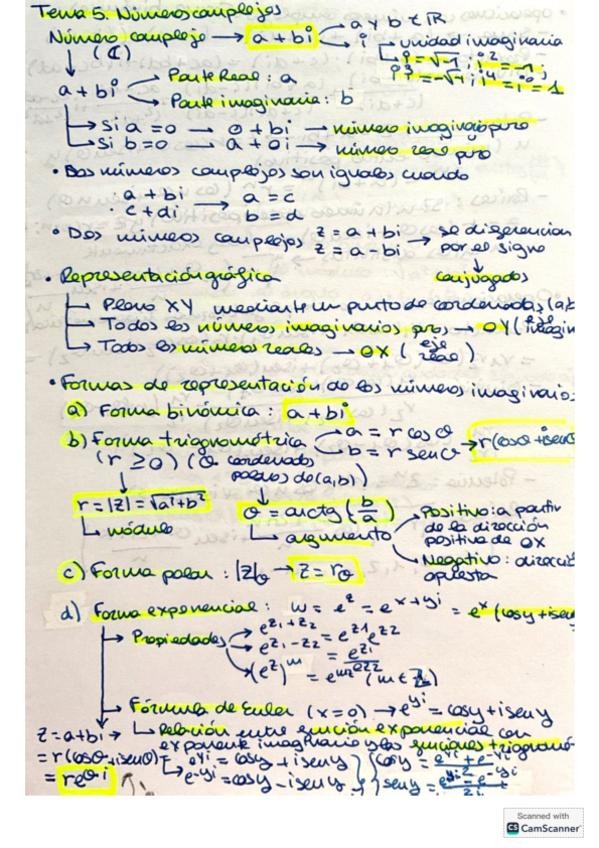 Tema 5. Números complejos
Número complejo → a + bi → a y b ∈ ℝ
(ℂ) i → unidad imaginaria
i = √-1 ; i² = -1 ;
i³ = -√-1 ; i⁴ = 1
a + bi → Parte Real : a
Parte imaginaria : b
→ si a = 0 → 0 + bi → número imaginario puro
→ si b = 0 → a + 0i → número real puro
• Dos números complejos son iguales cuando
a + bi → a = c
c + di b = d
• Dos números complejos z = a + bi → se diferencian
z = a - bi por el signo
conjugados
• Representación gráfica
→ Plano XY mediante un punto de coordenadas (a,b
→ Todos los números imaginarios puros → OY (eje imagin
→ Todos los números reales → OX (eje real)
• Formas de representación de los números imaginario
a) Forma binómica : a + bi
b) Forma trigonométrica → a = r cosθ
b = r senθ → r(cosθ + isenθ
(r ≥ 0) (θ coordenadas
polares de (a,b))
r = |z| = √a²+b² θ = arctg (b/a)
→ módulo → argumento
Positivo : a partir
de la dirección
positiva de OX
Negativo : direcci
opuesta
c) Forma polar : |z|θ → z = rθ
d) Forma exponencial : w = e^z = e^x+yi = e^x (cosy + isen
→ Propiedades → e^z1+z2 = e^z1 e^z2
→ e^z1-z2 = e^z1/e^z2
→ (e^z)^m = e^mz (m ∈ Z)
→ Fórmula de Euler (x = 0) → e^yi = cosy + iseny
z = a + bi → Relación entre función exponencial con
exponente imaginario y las funciones trigonomé
= r(cosθ + isenθ) = e^yi = cosy + iseny } { cosy = e^yi + e^-yi / 2
= re^θi e^-yi = cosy - iseny } { seny = e^yi - e^-yi / 2i
Scanned with
CS CamScanner